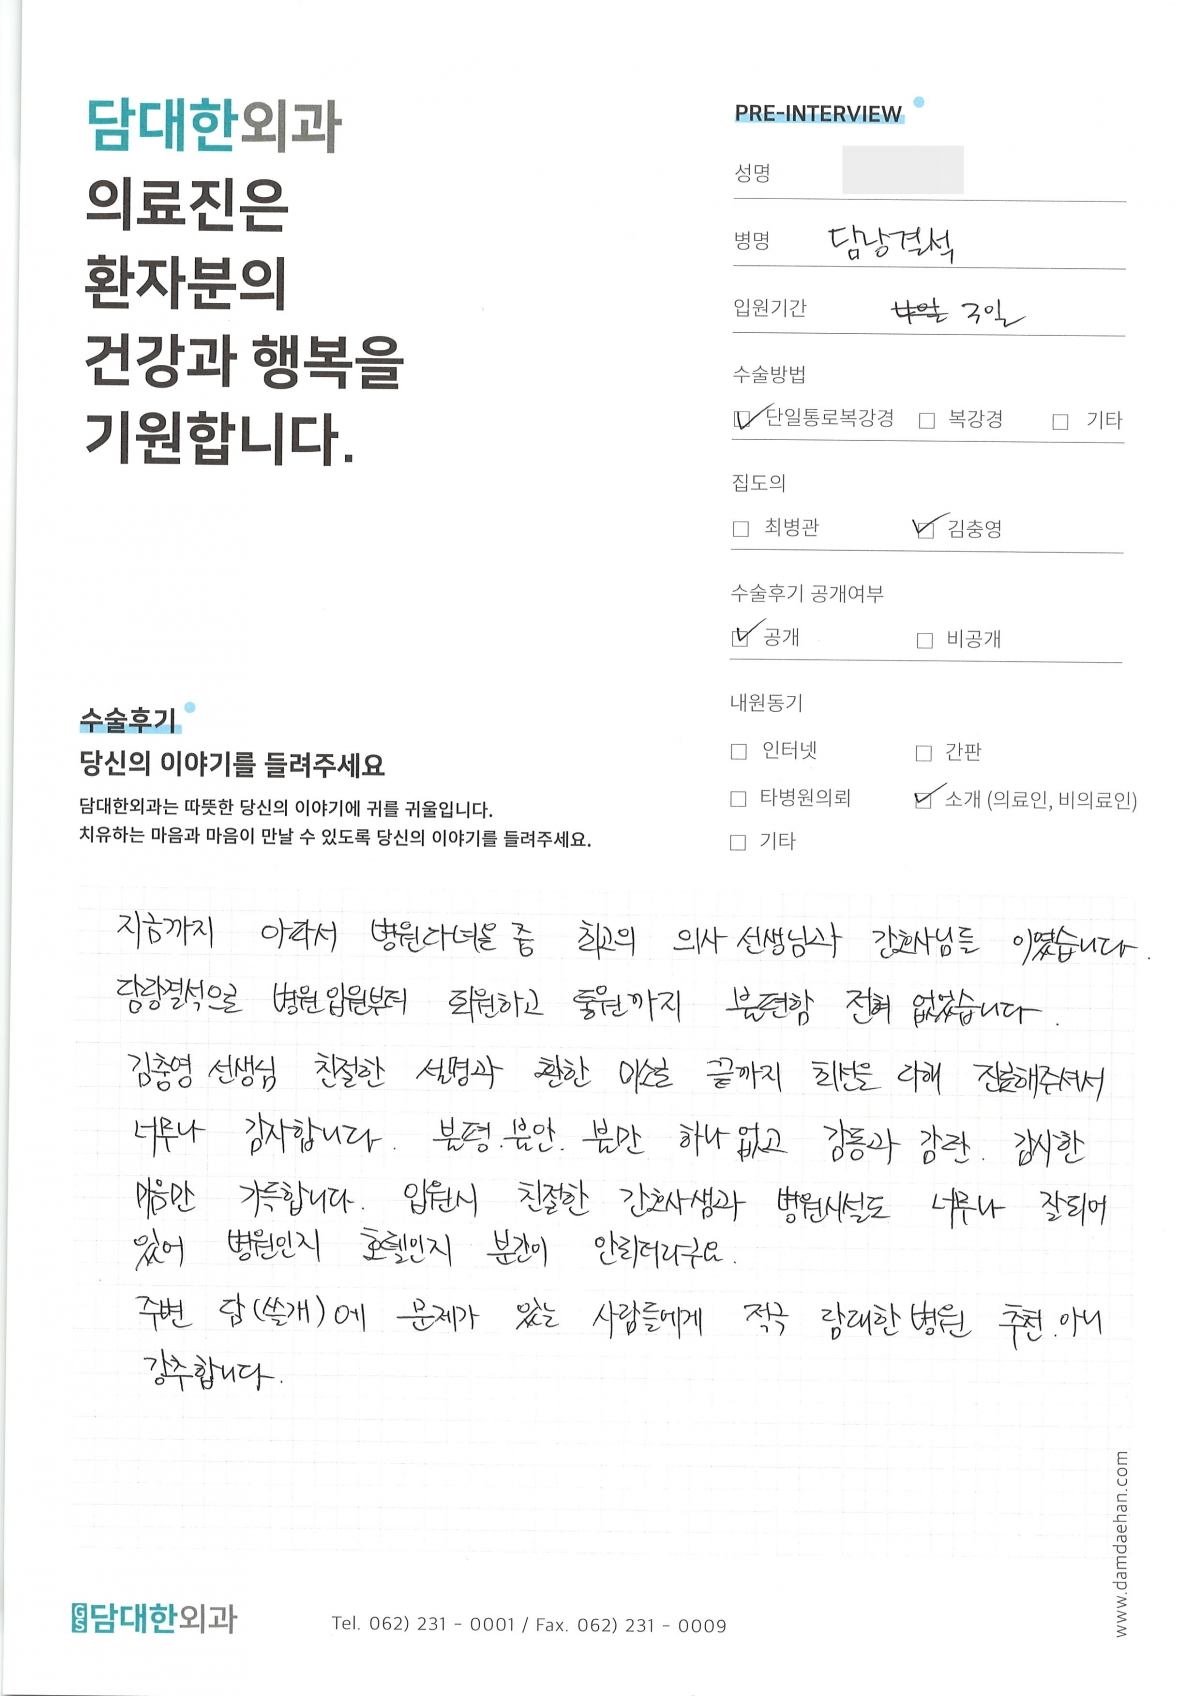 담대한외과
의료진은
환자분의
건강과 행복을
기원합니다.
PRE-INTERVIEW
성명
병명 담낭결석
입원기간 3일
수술방법
단일통로복강경 복강경 기타
집도의
최병관 김충영
수술후기 공개여부
공개 비공개
내원동기
인터넷 간판
타병원의뢰 소개 (의료인, 비의료인)
기타
수술후기
당신의 이야기를 들려주세요
담대한외과는 따뜻한 당신의 이야기에 귀를 귀울입니다.
치유하는 마음과 마음이 만날 수 있도록 당신의 이야기를 들려주세요.
지금까지 아파서 병원다녀온 중 최고의 의사 선생님과 간호사님들 이였습니다.
담낭결석으로 병원입원부터 퇴원하고 통원까지 불편함 전혀 없었습니다.
김충영 선생님 친절한 설명과 환한 미소로 끝까지 최선을 다해 진료해주셔서
너무나 감사합니다. 불평.불안.불만 하나 없고 감동과 감탄. 감사한
마음만 가득합니다. 입원시 친절한 간호사샘과 병원시설도 너무나 잘되어
있어 병원인지 호텔인지 분간이 안되더라구요.
주변 담(쓸개)에 문제가 있는 사람들에게 적극 담대한병원 추천.아니
강추합니다.
GS 담대한외과
Tel. 062) 231 - 0001 / Fax. 062) 231 - 0009
www.damdaehan.com